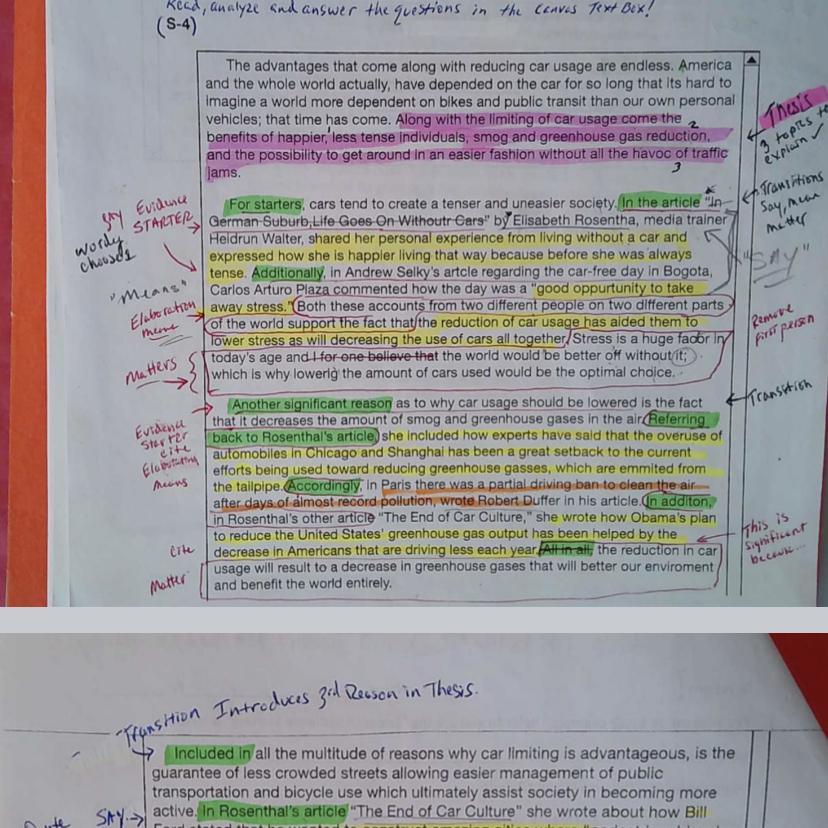 Read, analyze and answer the questions in the Canvas Text Box!
(S-4)
The advantages that come along with reducing car usage are endless. America
and the whole world actually, have depended on the car for so long that its hard to
imagine a world more dependent on bikes and public transit than our own personal
vehicles; that time has come. Along with the limiting of car usage come the
benefits of happier, less tense individuals, smog and greenhouse gas reduction,
and the possibility to get around in an easier fashion without all the havoc of traffic
jams.
1
2
3
Thesis
3 topics to
explain ✓
For starters, cars tend to create a tenser and uneasier society. In the article "In
German Suburb,Life Goes On Withoutr Cars" by Elisabeth Rosentha, media trainer
Heidrun Walter, shared her personal experience from living without a car and
expressed how she is happier living that way because before she was always
tense. Additionally, in Andrew Selky's artcle regarding the car-free day in Bogota,
Carlos Arturo Plaza commented how the day was a "good oppurtunity to take
away stress." Both these accounts from two different people on two different parts
of the world support the fact that the reduction of car usage has aided them to
lower stress as will decreasing the use of cars all together. Stress is a huge facor in
today's age and I for one believe that the world would be better off without it;
which is why lowerig the amount of cars used would be the optimal choice.
Evidence
STARTER
wordy
"Means"
Elaboration
means
Matters
Transitions
Say, mean
matter
"SAY"
Remove
first person
Another significant reason as to why car usage should be lowered is the fact
that it decreases the amount of smog and greenhouse gases in the air. Referring
back to Rosenthal's article, she included how experts have said that the overuse of
automobiles in Chicago and Shanghai has been a great setback to the current
efforts being used toward reducing greenhouse gasses, which are emmited from
the tailpipe. Accordingly, in Paris there was a partial driving ban to clean the air
after days of almost record pollution, wrote Robert Duffer in his article. In additon,
in Rosenthal's other article "The End of Car Culture," she wrote how Obama's plan
to reduce the United States' greenhouse gas output has been helped by the
decrease in Americans that are driving less each year. All in all, the reduction in car
usage will result to a decrease in greenhouse gases that will better our enviroment
and benefit the world entirely.
Transition
Evidence
Starter
cite
Elaborating
means
cite
Matter
This is
significant
because...
Transition Introduces 3rd Reason in Thesis.
Included in all the multitude of reasons why car limiting is advantageous, is the
guarantee of less crowded streets allowing easier management of public
transportation and bicycle use which ultimately assist society in becoming more
active. In Rosenthal's article "The End of Car Culture" she wrote about how Bill
SAY